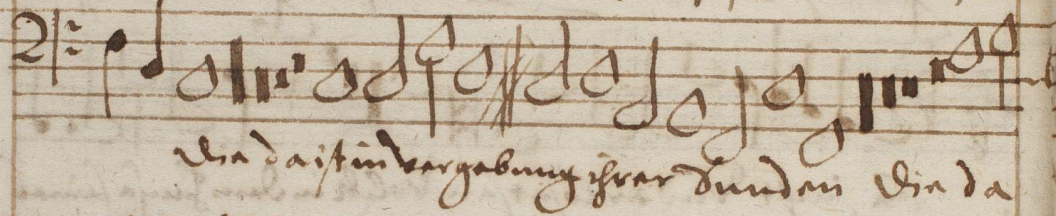 die da ist in vergebung ihrer Sunden die da